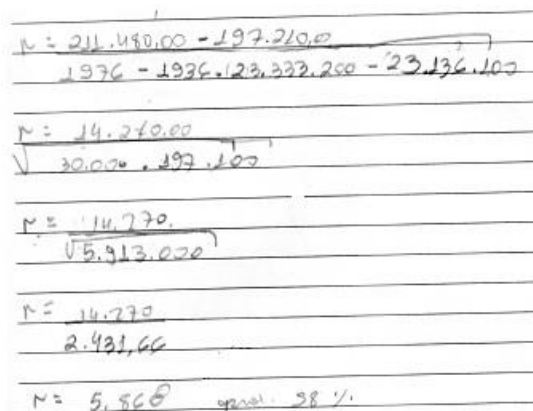 r = 211.480,00 - 197.210,0
1976 - 1936 . 23.333.200 - 23.136.100
r = 14.270.00
√30.000 . 197.100
r = 14.270.
√5.913.000
r = 14.270
2.431,66
r = 5,868 98 %